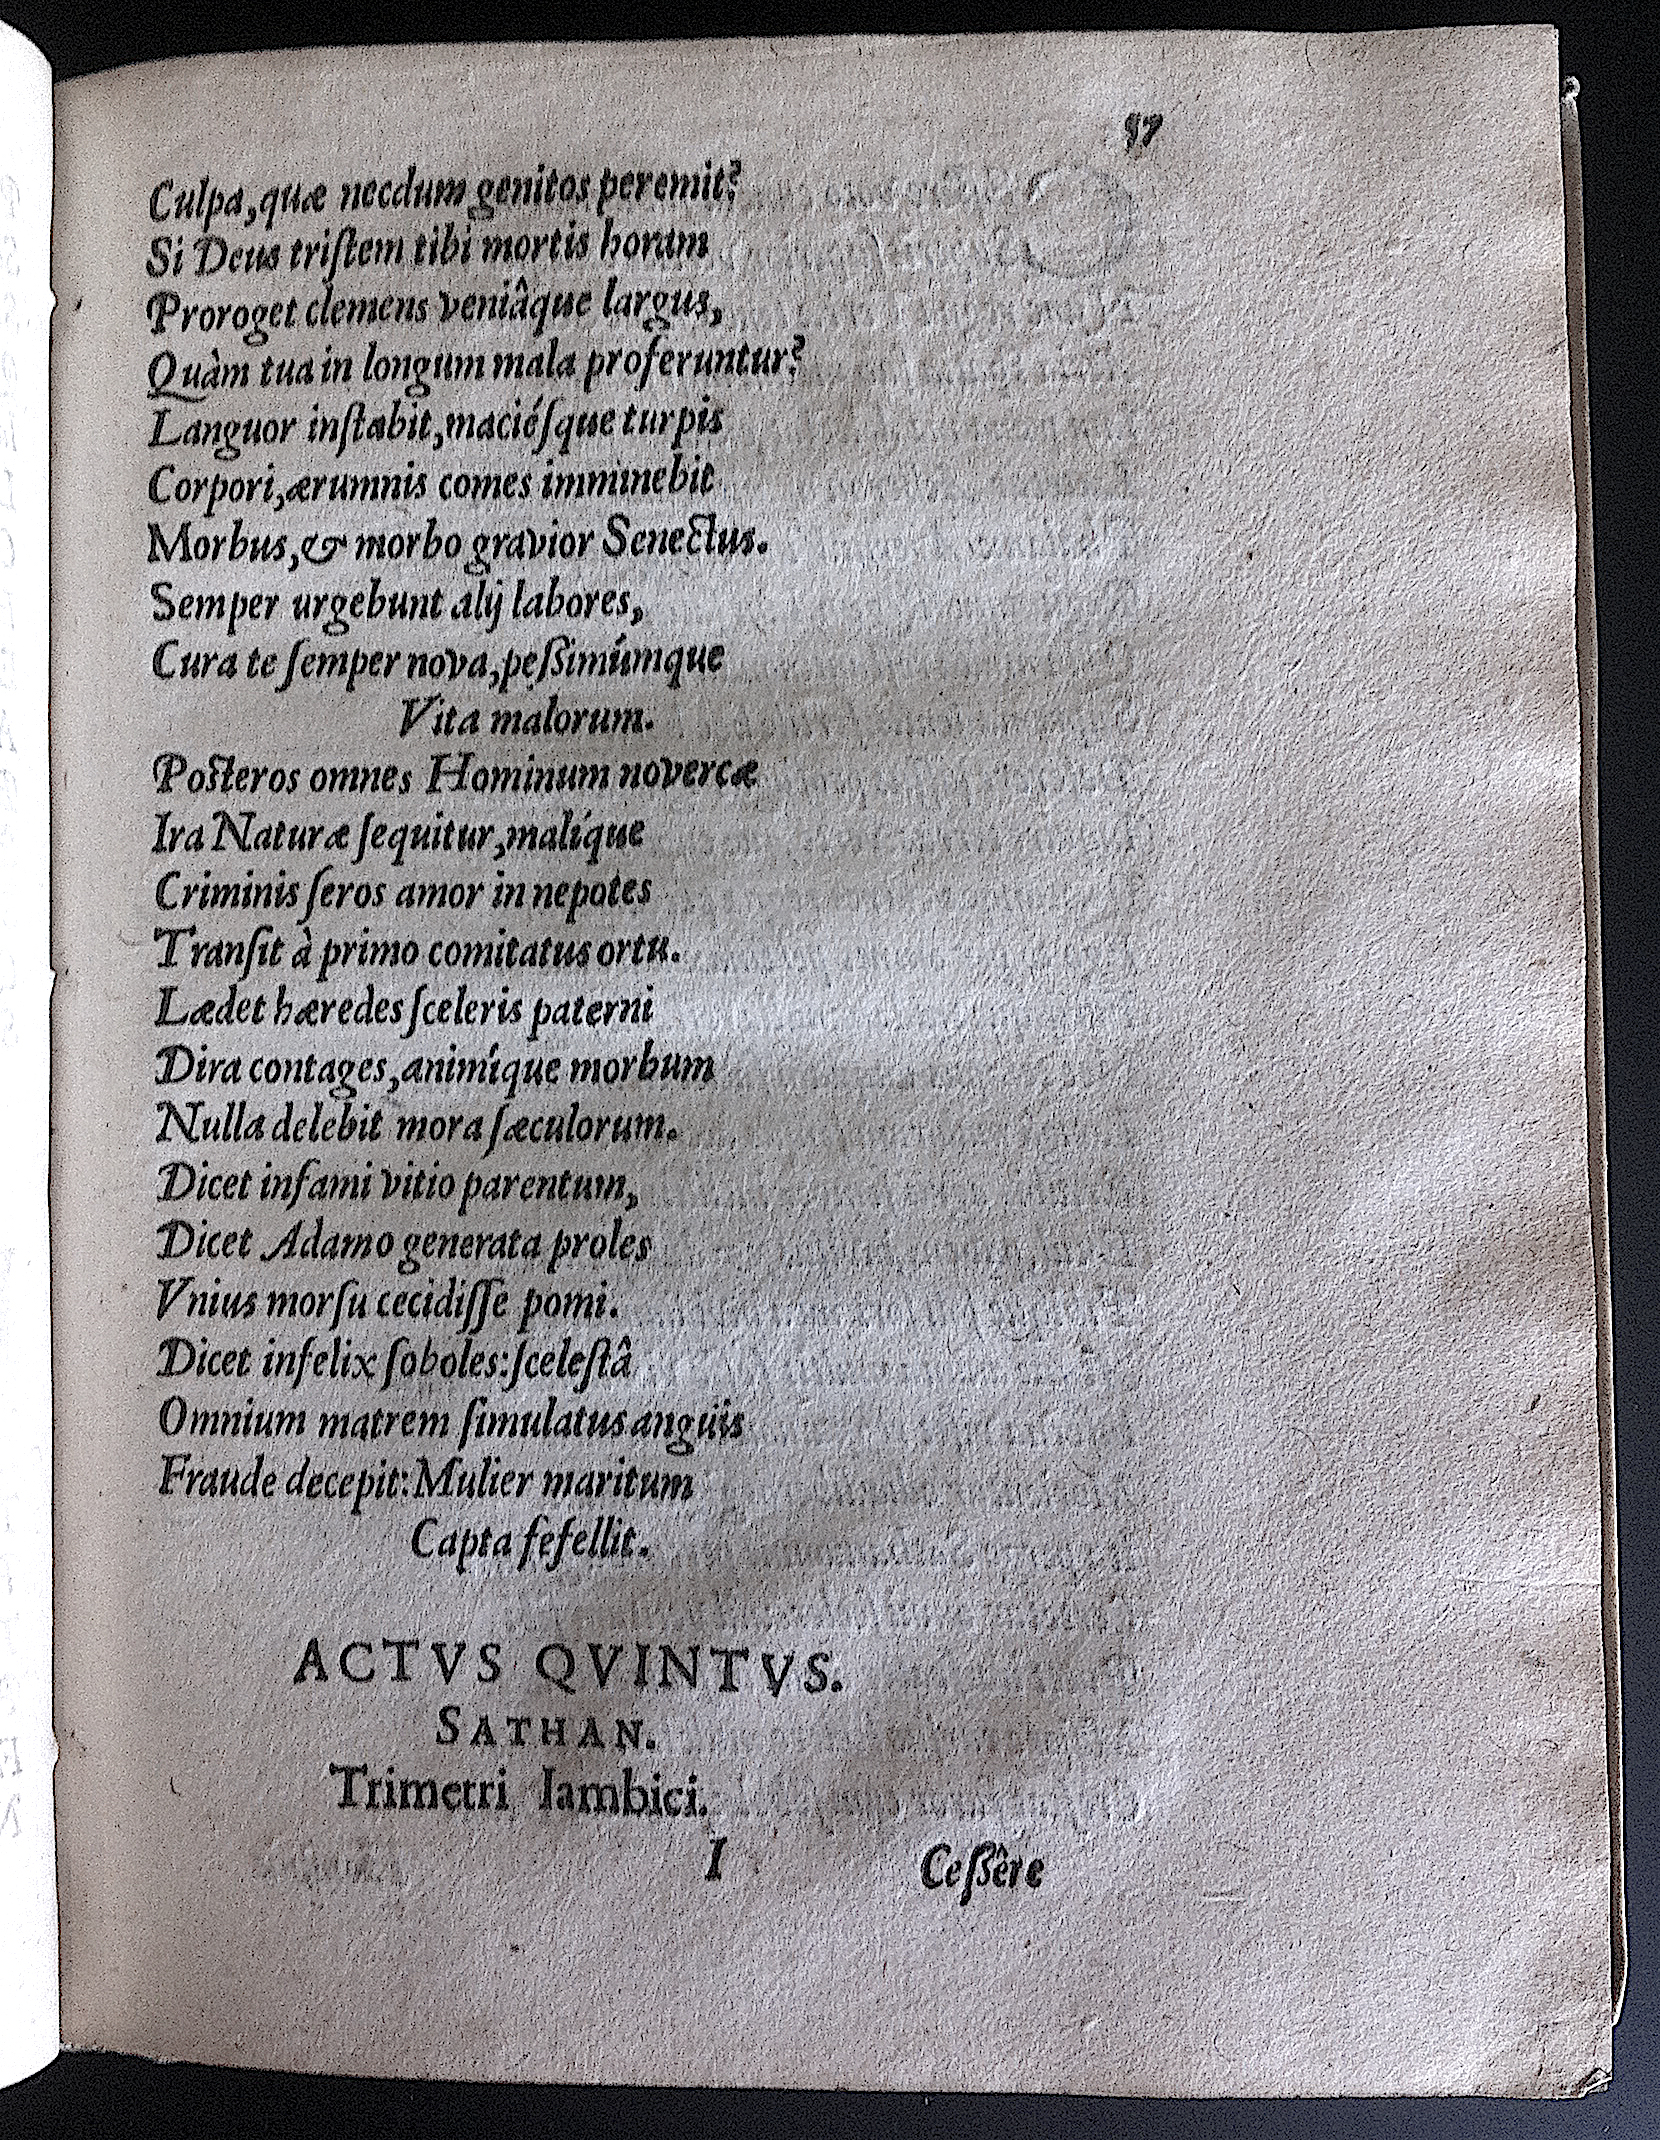 57
Culpa, quæ necdum genitos peremit?
Si Deus triſtem tibi mortis horam
Proroget clemens veniâque largus,
Quàm tua in longum mala proferuntur?
Languor inſtabit, maciéſque turpis
Corpori, ærumnis comes imminebit
Morbus, & morbo gravior Senectus.
Semper urgebunt alij labores,
Cura te ſemper nova, peßimúmque
Vita malorum.
Posteros omnes Hominum novercæ
Ira Naturæ ſequitur, malíque
Criminis ſeros amor in nepotes
Tranſit à primo comitatus ortu.
Lædet hæredes ſceleris paterni
Dira contages, animíque morbum
Nulla delebit mora ſæculorum.
Dicet infami vitio parentum,
Dicet Adamo generata proles
Vnius morſu cecidiſſe pomi.
Dicet infelix ſoboles: ſceleſtâ
Omnium matrem ſimulatus anguis
Fraude decepit: Mulier maritum
Capta fefellit.
ACTVS QVINTVS.
SATHAN.
Trimetri Iambici.
I Ceßêre